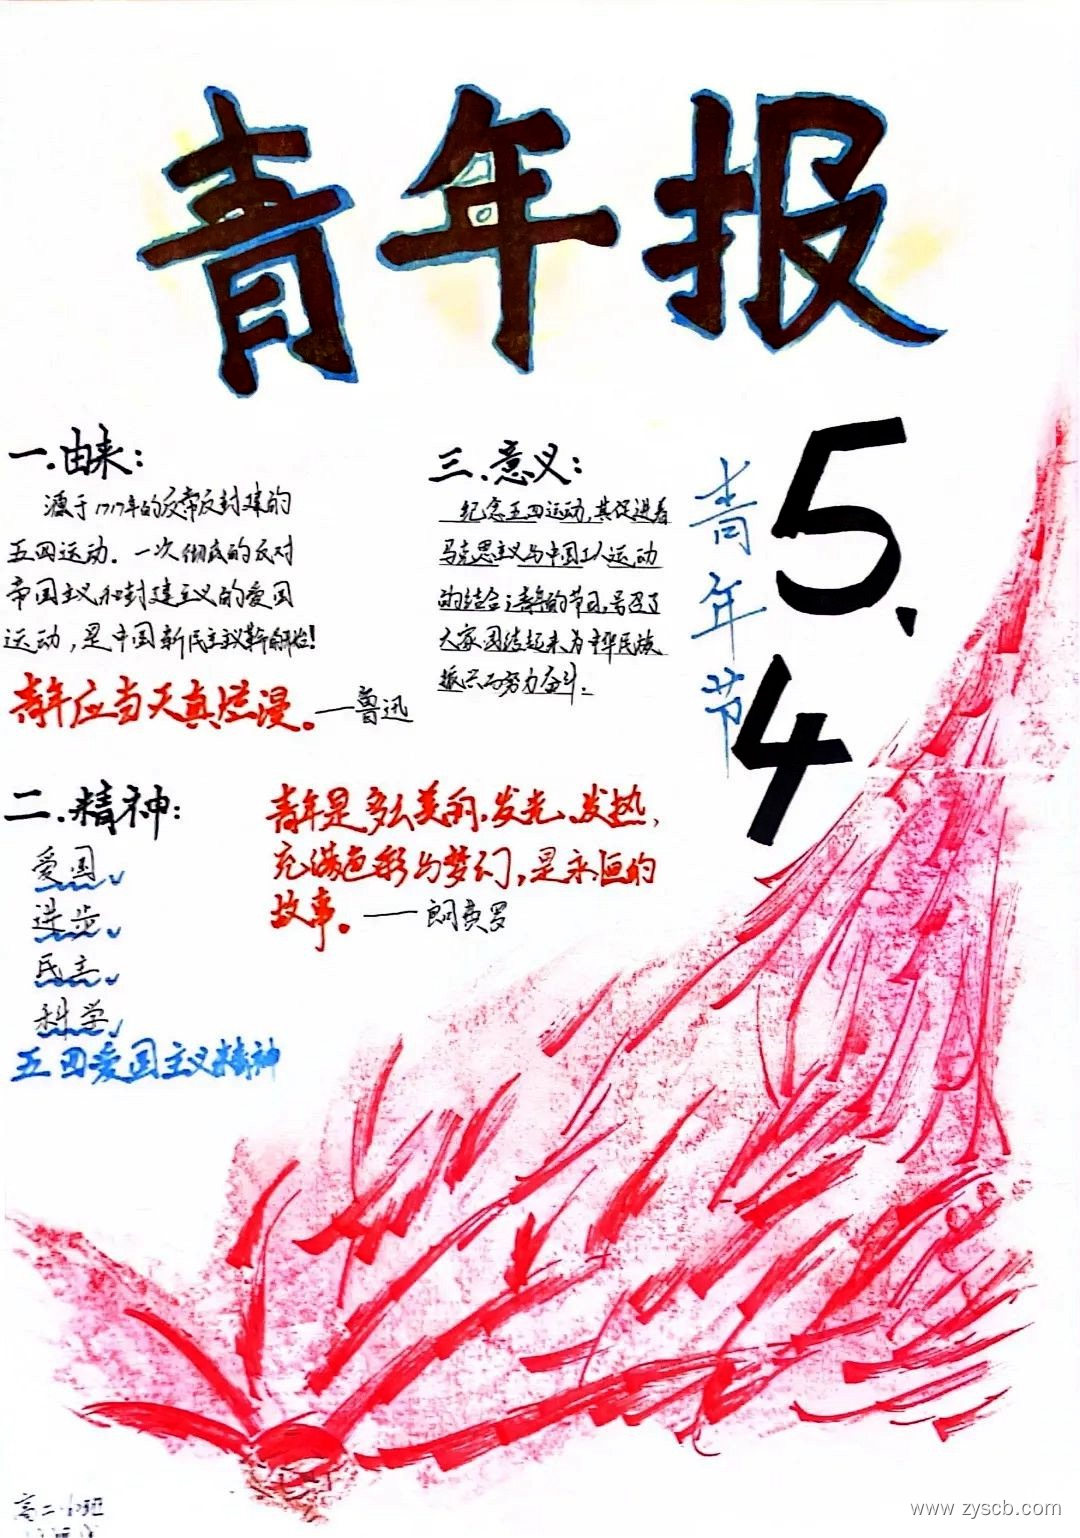 青年报
一.由来:
源于1919年的反帝反封建的
五四运动.一次彻底的反对
帝国主义和封建主义的爱国
运动,是中国新民主主义革命的开始!
青年应当天真烂漫。——鲁迅
二.精神:
爱国
进步
民主
科学
五四爱国主义精神
三.意义:
纪念五四运动,其促进着
马克思主义与中国工人运动
的结合;青年的节日,号召了
大家团结起来为中华民族
振兴而努力奋斗.
青年是多么美的,发光、发热,
充满色彩与梦幻,是永恒的
故事。——朗费罗
5.4
青年节
高二
www.zyscb.com